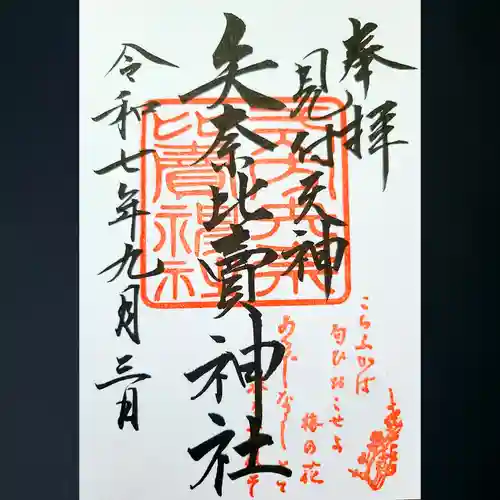 奉拝
見付天神
矢奈比賣神社
令和七年九月三日
こちふかば
匂ひおこせよ
梅の花
あるじなしとて